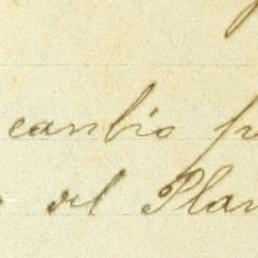 cambio
del Plan